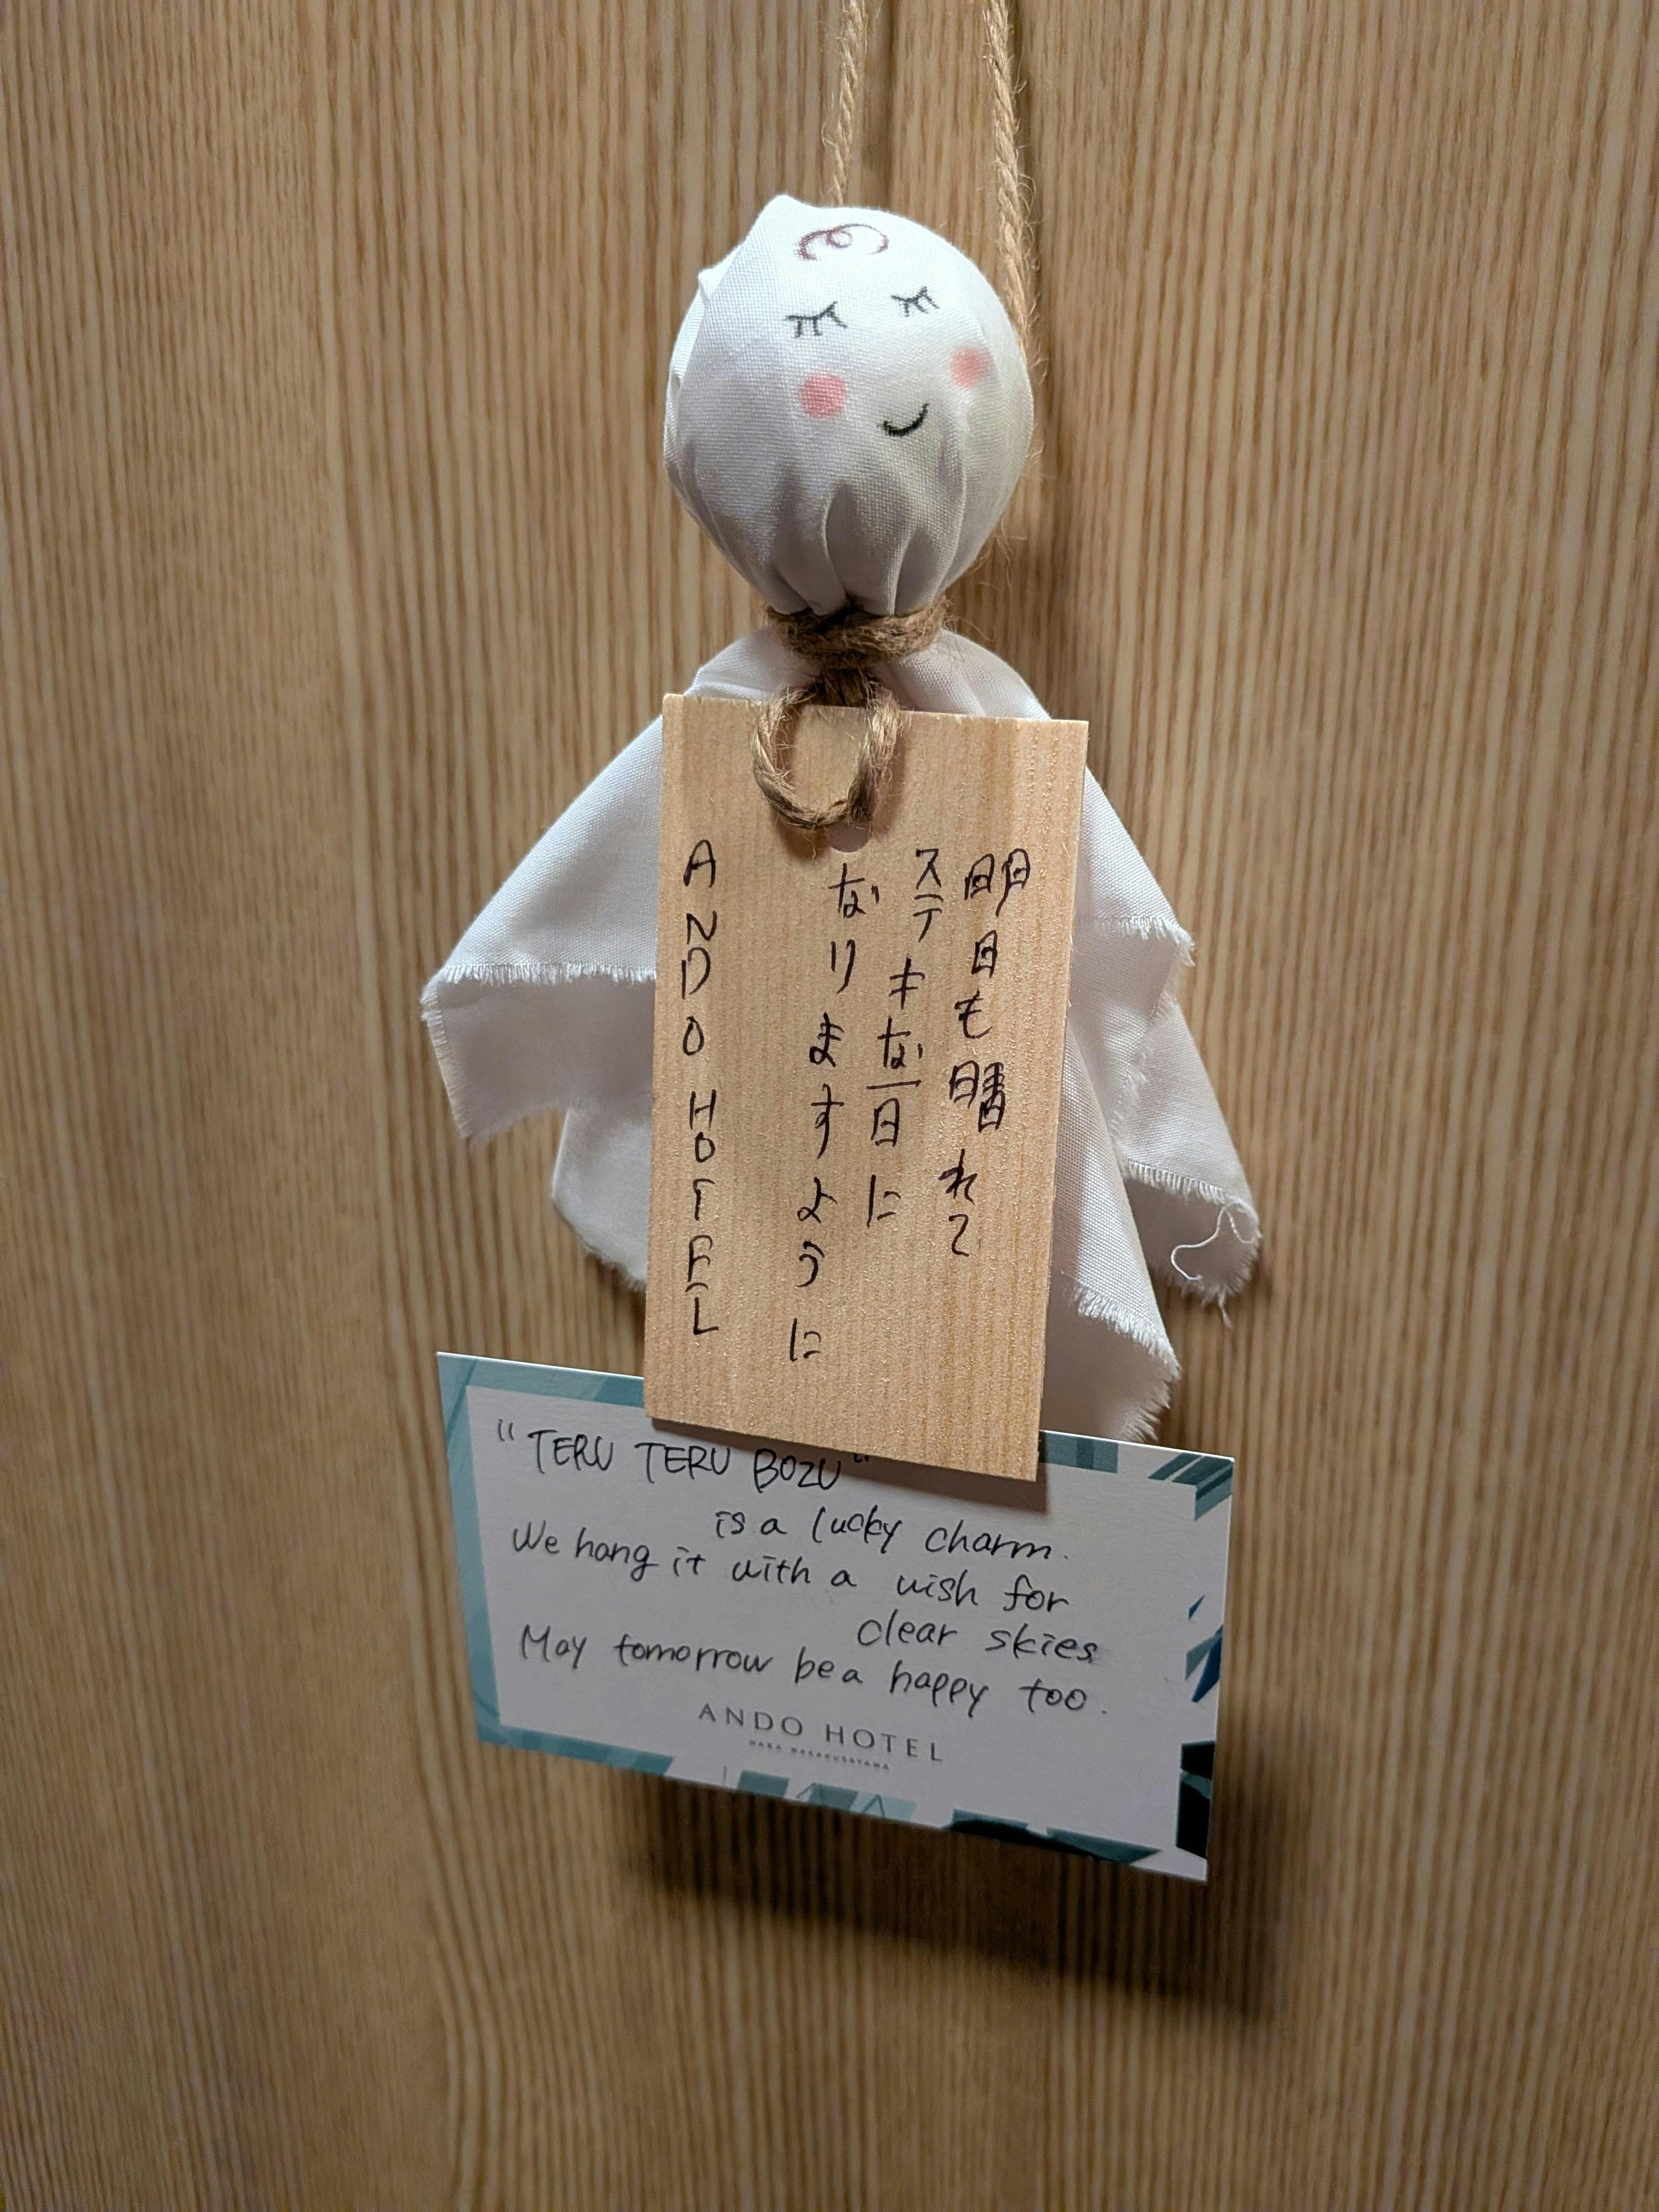 明日も晴れて
ステキな一日に
なりますように
ANDO HOTEL
"TERU TERU BOZU"
is a lucky charm.
We hang it with a wish for
clear skies
May tomorrow be a happy too.
ANDO HOTEL
NARA WAKAKUSAYAMA